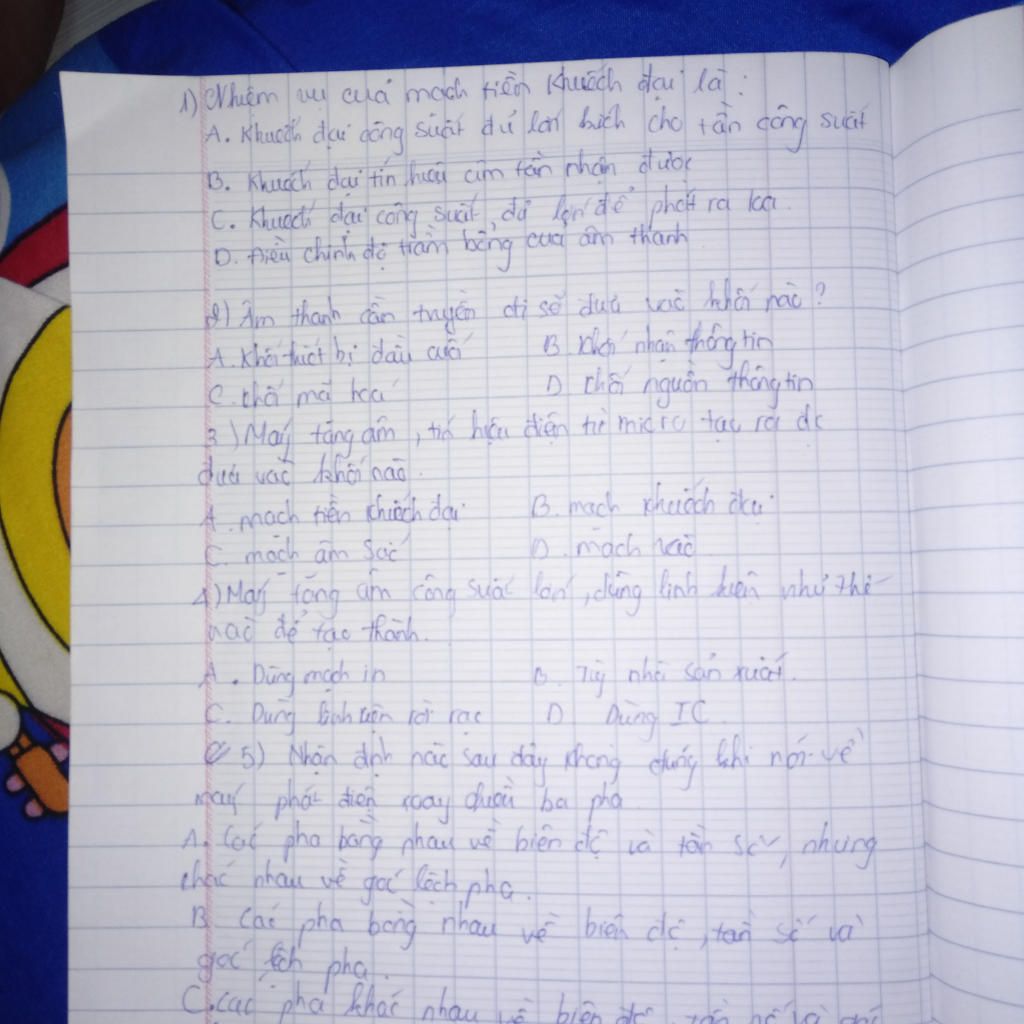 1) Nhiệm vụ của mạch tiền khuếch đại là:
A. Khuếch đại công suất đủ lớn kích cho tần công suất
B. Khuếch đại tín hiệu âm tần nhận được
C. Khuếch đại công suất đủ lớn để phát ra loa.
D. Điều chỉnh độ trầm bổng của âm thanh
2) Âm thanh cần truyền đi sẽ đưa vào khối nào?
A. Khối thiết bị đầu cuối B. Khối nhận thông tin
C. Khối mã hóa D Khối nguồn thông tin
3) Máy tăng âm, tín hiệu điện từ micro tạo ra đc
đưa vào khối nào.
A. mạch tiền khuếch đại B. mạch khuếch đại
C. mạch âm sắc D. mạch vào
4) Máy tăng âm công suất lớn, dùng linh kiện như thế
nào để tạo thành.
A. Dùng mạch in B. Tùy nhà sản xuất.
C. Dùng linh kiện rời rạc D Dùng IC.
5) Nhận định nào sau đây không đúng khi nói về
máy phát điện xoay chiều ba pha
A. Các pha bằng nhau về biên độ và tần số, nhưng
khác nhau về góc lệch pha.
B Các pha bằng nhau về biên độ, tần số và
góc lệch pha.
C. các pha khác nhau về biên độ